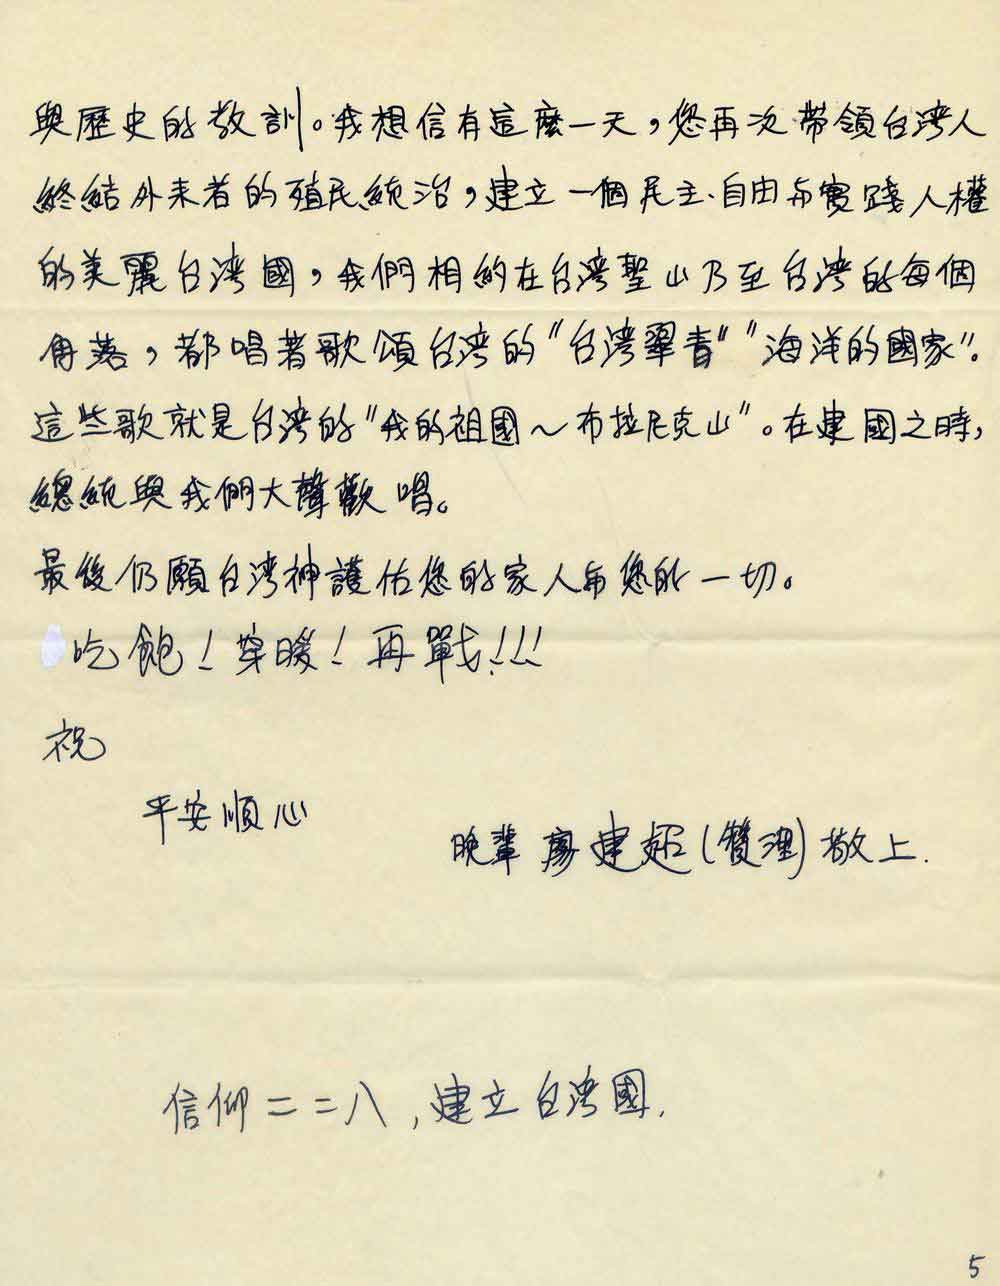 與歷史的教訓。我想信有這麼一天，您再次帶領台湾人
終結外来者的殖民統治，建立一個民主、自由与實踐人權
的美麗台湾國，我們相約在台湾聖山乃至台湾的每個
角落，都唱着歌頌台湾的"台湾翠青" "海洋的國家"。
這些歌就是台湾的"我的祖國～布拉尼克山"。在建國之時，
總統與我們大聲歡唱。
最後仍願台湾神護佑您的家人与您的一切。
吃飽！穿暖！再戰！！！
祝
平安順心
晚輩 廖建超（雙溼）敬上.
信仰二二八，建立台湾國.
5